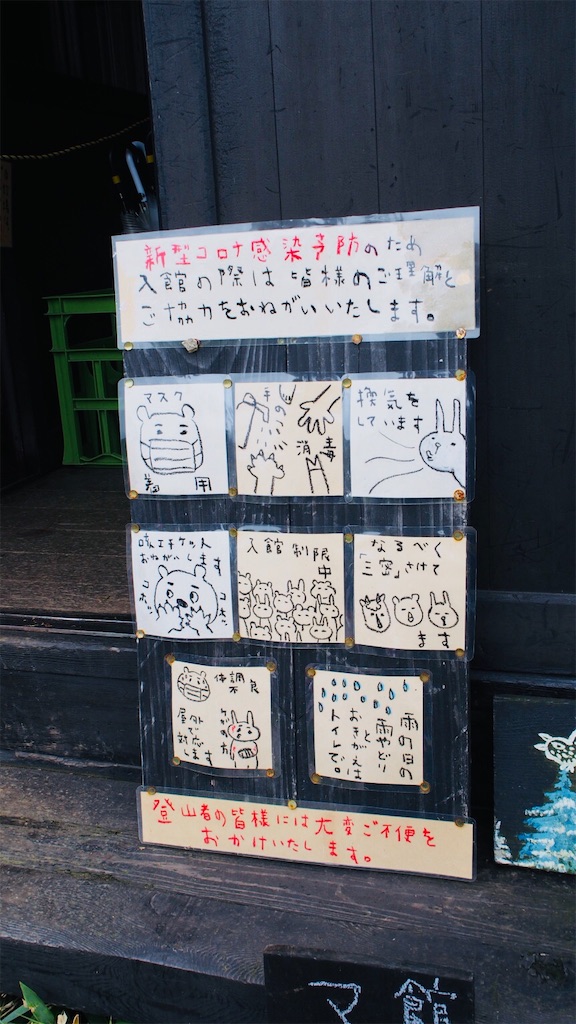 新型コロナ感染予防のため
入館の際は皆様のご理解と
ご協力をおねがいいたします。
マスク
着用
手の
消毒
換気を
しています
咳エチケット
おねがいします
コホッ
コホッ
入館制限
中
なるべく
「三密」さけて
ます
体調
不良
ケガの方
屋外で
対応
します
雨の日の
雨やどり
と
おきがえは
トイレで。
登山者の皆様には大変ご不便を
おかけいたします。
マ館